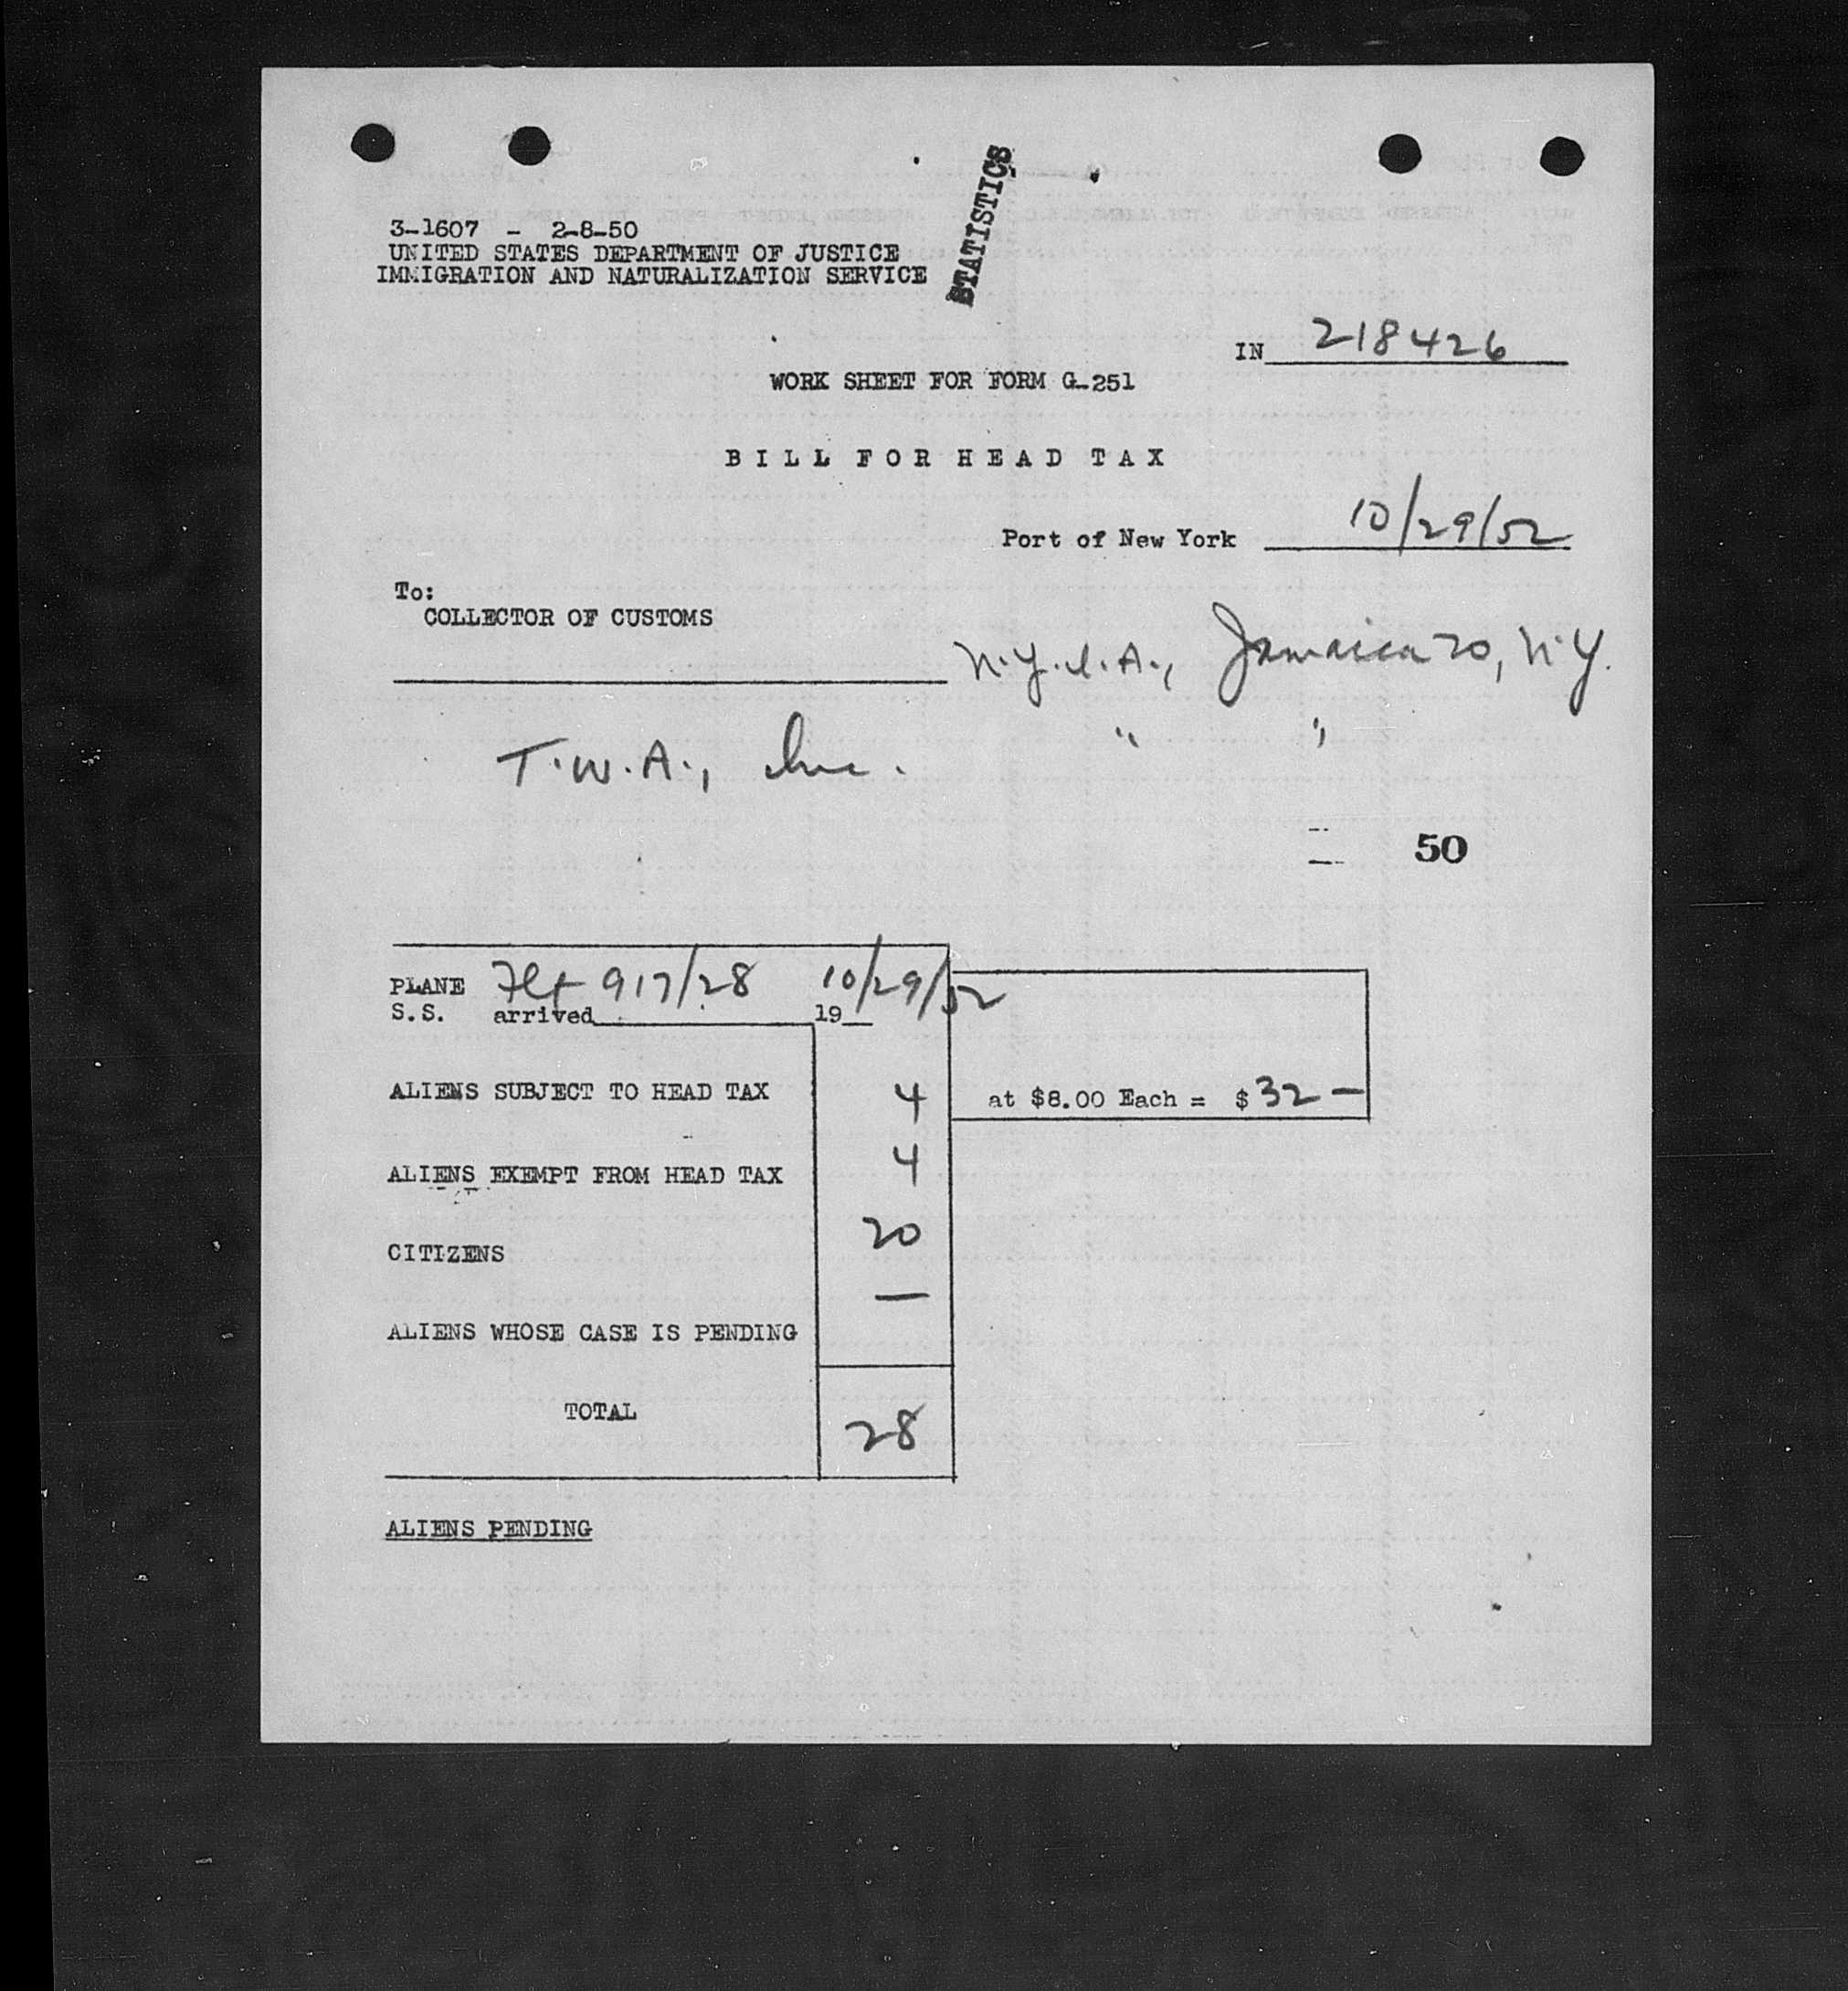 STATISTICS
3-1607 - 2-8-50
UNITED STATES DEPARTMENT OF JUSTICE
IMMIGRATION AND NATURALIZATION SERVICE
IN 218426
WORK SHEET FOR FORM G-251
BILL FOR HEAD TAX
Port of New York 10/29/52
To:
COLLECTOR OF CUSTOMS
N.Y.I.A., Jamaica 20, N.Y.
T.W.A., Inc. " "
50
PLANE Flt 917/28 10/29/52
S.S. arrived 19
ALIENS SUBJECT TO HEAD TAX 4 at $8.00 Each = $ 32 —
ALIENS EXEMPT FROM HEAD TAX 4
CITIZENS 20
ALIENS WHOSE CASE IS PENDING —
TOTAL 28
ALIENS PENDING